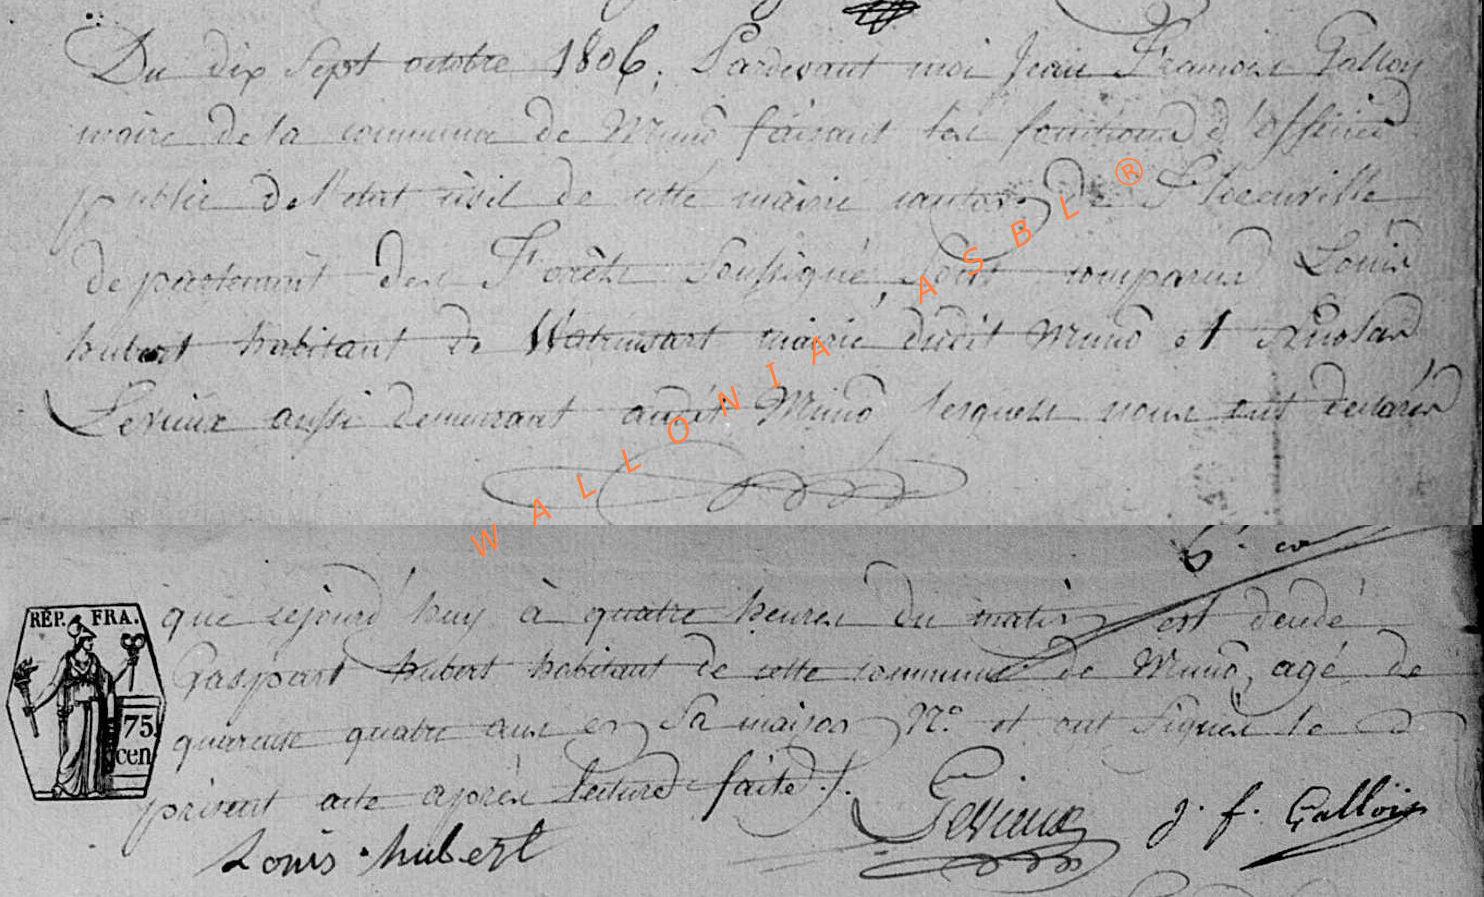 Du dix Sept octobre 1806, Pardevant moi Jean François Galloy
maire de la commune de Muno faisant les fonctions d'officier
public de l'etat civil de cette mairie canton de Florenville
departement des Forêts Soussigné, sont comparus Louis
hubert habitant de Watrinsart mairie dudit Muno et
Lexieux aussi demeurant audit Muno lesquels nous ont declarés
WALLONIA, ASBL ®
que cejourd'huy à quatre heures du matin est decedé
REP. FRA.
75.
cen
Gaspart hubert habitant de cette commune de Muno, agé de
quarente quatre ans en Sa maison N.° et ont Signés le
présent acte après lecture faite ./.
Louis hubert
Lexieux
J. f. Galloy